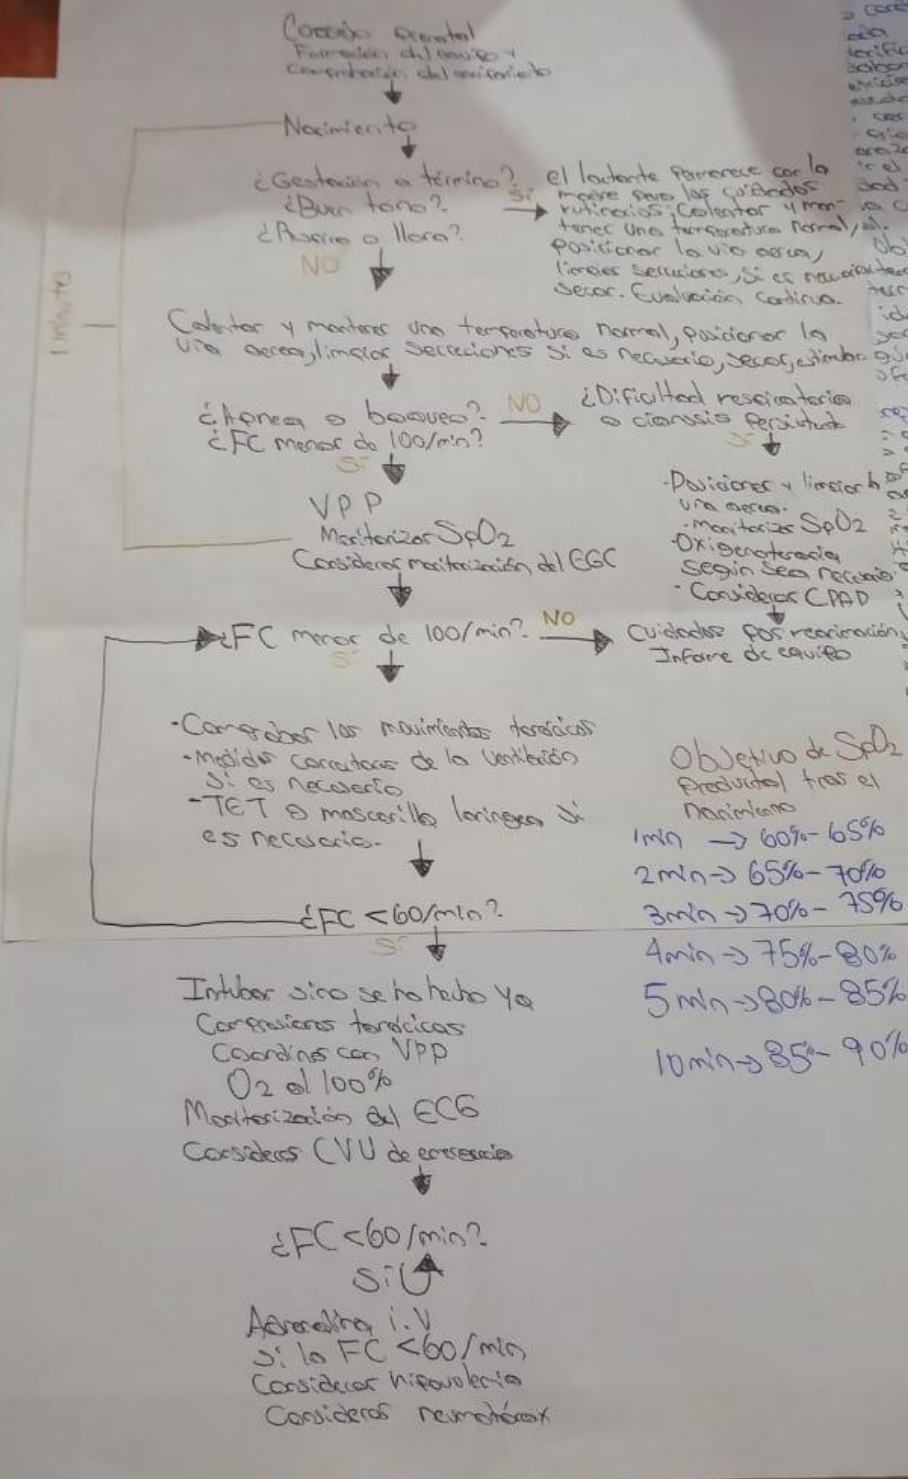 Consejo prenatal
Formación del equipo y
Comprobación del equipamiento
Nacimiento
1 minuto
¿Gestación a término?
¿Buen tono?
¿Respira o llora?
Si
el lactante permerece con la
madre para los cuidados
rutinarios; Calentar y man-
tener una temperatura normal,
posicionar la via aerea,
limpiar secreciones, si es necesario
secar. Evaluación continua.
NO
Calentar y mantener una temperatura normal, posicionar la
via aerea, limpiar secreciones si es necesario, secar, estimular
¿Apnea o boqueo?
¿FC menor de 100/min?
NO
¿Dificultad respiratoria
o cianosis persistente
Si
Si
-Posicionar y limpiar la
via aerea.
-Monitorizar SpO2
-Oxigenoterapia
según sea necesario
-Considerar CPAP
VPP
Monitorizar SpO2
Considerar monitorización del EGC
¿FC menor de 100/min?
NO
Cuidados posreanimación,
Informe de equipo
Si
-Comprobar los movimientos torácicos
-Medidas correctoras de la ventilación
si es necesario
-TET o mascarilla laringea si
es necesario.
¿FC <60/min?
Si
Objetivo de SpO2
Preductal tras el
nacimiento
1min → 60%-65%
2min → 65%-70%
3min → 70%-75%
4min → 75%-80%
5min → 80%-85%
10min → 85%-90%
Intubar sino se ha hecho ya
Compresiones torácicas
Coordinar con VPP
O2 al 100%
Monitorización del ECG
Considerar CVU de emergencia
¿FC <60/min?
Si
Adrenalina i.v
si la FC <60/min
Considerar hipovolemia
Considerar neumotórax